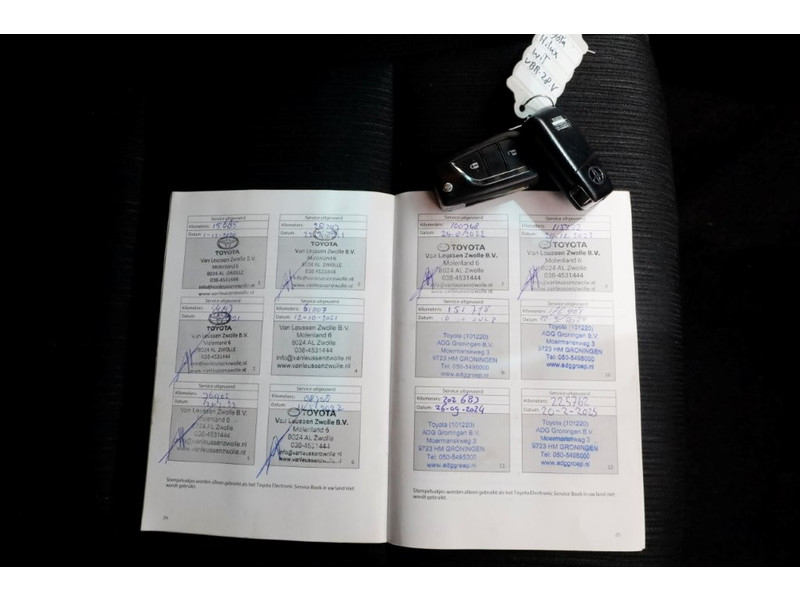 Hilux
WiT
Service uitgevoerd
Kilometers: 15.885
Datum:
TOYOTA
Van Leussen Zwolle B.V.
Molenland 6
8024 AL ZWOLLE
038-4531444
info@vanleussenzwolle.nl
www.vanleussenzwolle.nl
1
Service uitgevoerd
Kilometers:
Datum:
TOYOTA
Van Leussen Zwolle B.V.
Molenland 6
8024 AL ZWOLLE
038-4531444
info@vanleussenzwolle.nl
www.vanleussenzwolle.nl
2
Service uitgevoerd
Kilometers:
Datum:
TOYOTA
Van Leussen Zwolle B.V.
Molenland 6
8024 AL ZWOLLE
038-4531444
info@vanleussenzwolle.nl
www.vanleussenzwolle.nl
3
Service uitgevoerd
Kilometers: 61007
Datum: 12-10-2021
Van Leussen Zwolle B.V.
Molenland 6
8024 AL ZWOLLE
038-4531444
info@vanleussenzwolle.nl
www.vanleussenzwolle.nl
4
Service uitgevoerd
Kilometers:
Datum:
Van Leussen Zwolle B.V.
Molenland 6
8024 AL Zwolle
038-4531444
info@vanleussenzwolle.nl
www.vanleussenzwolle.nl
5
Service uitgevoerd
Kilometers:
Datum:
TOYOTA
Van Leussen Zwolle B.V.
Molenland 6
8024 AL Zwolle
038-4531444
info@vanleussenzwolle.nl
www.vanleussenzwolle.nl
6
Stempelvakjes worden alleen gebruikt als het Toyota Electronic Service Book in uw land niet
wordt gebruikt.
34
Service uitgevoerd
Kilometers: 100768
Datum:
TOYOTA
Van Leussen Zwolle B.V.
Molenland 6
8024 AL ZWOLLE
038-4531444
info@vanleussenzwolle.nl
www.vanleussenzwolle.nl
Service uitgevoerd
Kilometers:
Datum:
TOYOTA
Van Leussen Zwolle B.V.
Molenland 6
8024 AL ZWOLLE
038-4531444
info@vanleussenzwolle.nl
www.vanleussenzwolle.nl
Service uitgevoerd
Kilometers:
Datum:
Toyota (101220)
ADG Groningen B.V.
Moermanskweg 3
9723 HM GRONINGEN
Tel: 050-5495000
www.adggroep.nl
Service uitgevoerd
Kilometers:
Datum:
Toyota (101220)
ADG Groningen B.V.
Moermanskweg 3
9723 HM GRONINGEN
Tel: 050-5495000
www.adggroep.nl
Service uitgevoerd
Kilometers: 202.683
Datum: 26-09-2024
Toyota (101220)
ADG Groningen B.V.
Moermanskweg 3
9723 HM GRONINGEN
Tel: 050-5495000
www.adggroep.nl
11
Service uitgevoerd
Kilometers: 225762
Datum: 20-2-2025
Toyota (101220)
ADG Groningen B.V.
Moermanskweg 3
9723 HM GRONINGEN
Tel: 050-5495000
www.adggroep.nl
12
Stempelvakjes worden alleen gebruikt als het Toyota Electronic Service Book in uw land niet
wordt gebruikt.
35